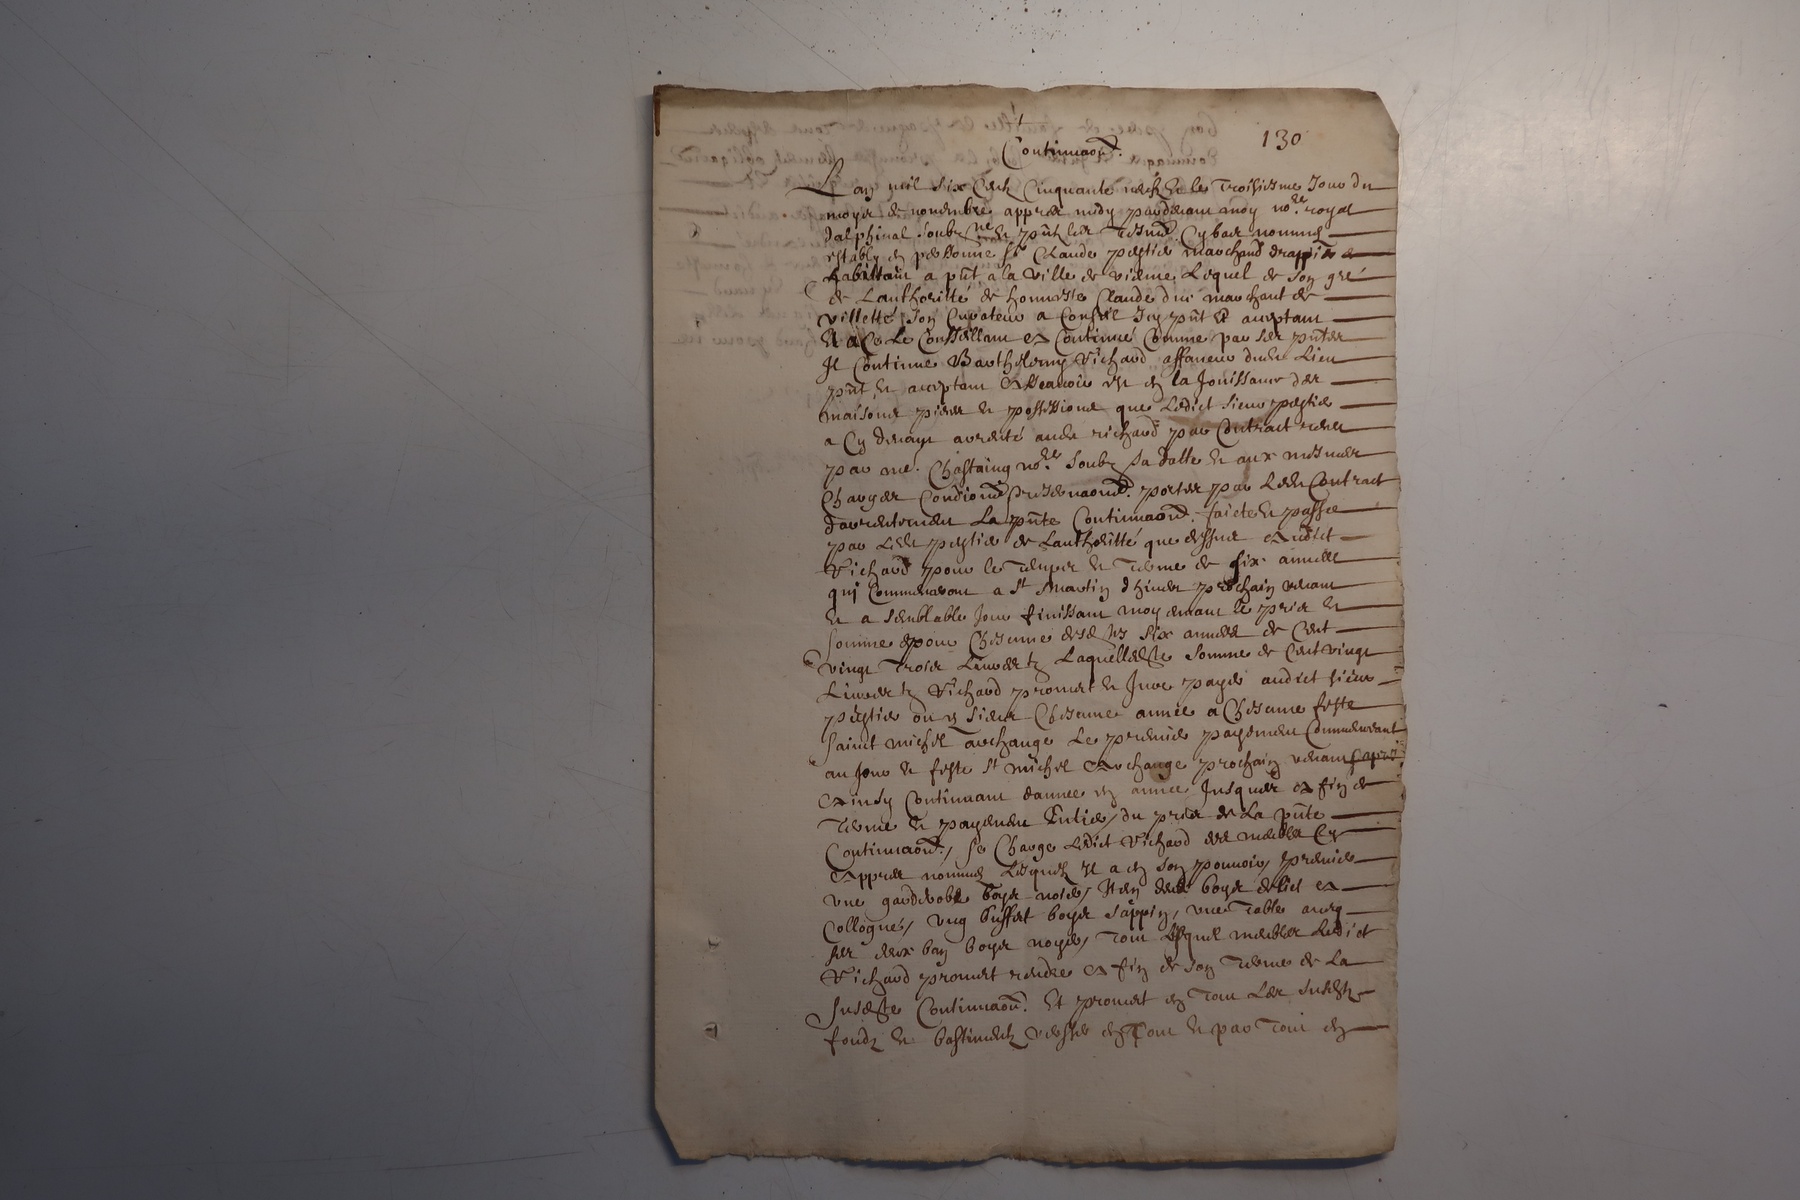 130
Continuaon.
L'an mil six cent cinquante neuf & le troisiesme jour du
moys de novembre appres midy pardevant moy no.re royal
dalphinal soubz.ne & pñt les tesmoī cy bas nommes
estably en personne sr Claude pestie marchand drappier
habittant a pñt a la ville de vienne lequel de son gré
de lauthoritté de honneste Claude duc marchant de
villette son curateur a conseil icy pñt & aceptant
& a ce le conseillant a continué comme par ces pñtes
Il continue Barthelemy Richard affaneur dudt lieu
pñt & aceptant assavoir est en la jouissance des
maisons pieces & possessions que ledict sieur pestie
a cy devant arenté audt richard par contract receu
par me. Chastaing no.re soubz sa datte & aux mesmes
charges condions preservaons. portes par ledt contract
darrentement la pñte continuaon. faicte & passée
par ledt pestie de lauthoritté que dessus audict
Richard pour le temps & terme de six annees
qui commenceront a St Martin dhiver prochain venant
& a semblable jour finissant moyenant le prix &
somme pour chescune desdtes six annees de cent
vingt trois livres tz laquelledte somme de cent vingt
livres tz Richard promet & jure payer audict sieur
pestie ou es siens chescune annee a chescune feste
sainct michel archange le premier payement commencant
au jour & feste st michel archange prochain venant
ainsy continuant dannee en annee jusques a fin de
terme & payement entier du prix de la pñte
Continuaon. / se charge ledict Richard des meubles cy
appres nommes lesquels il a en son pouvoir / premier
une garderobe boys noier / Item deux boys de lict a
collogne / ung buffet boys sappin, une table avec
ses deux ban boys noyer / tous lesquels meubles ledict
Richard promet rendre a fin de son terme de la
susdte continuaon. Et promet en tous les susdtz
fondz & bastimentz verser en tout & par tout en